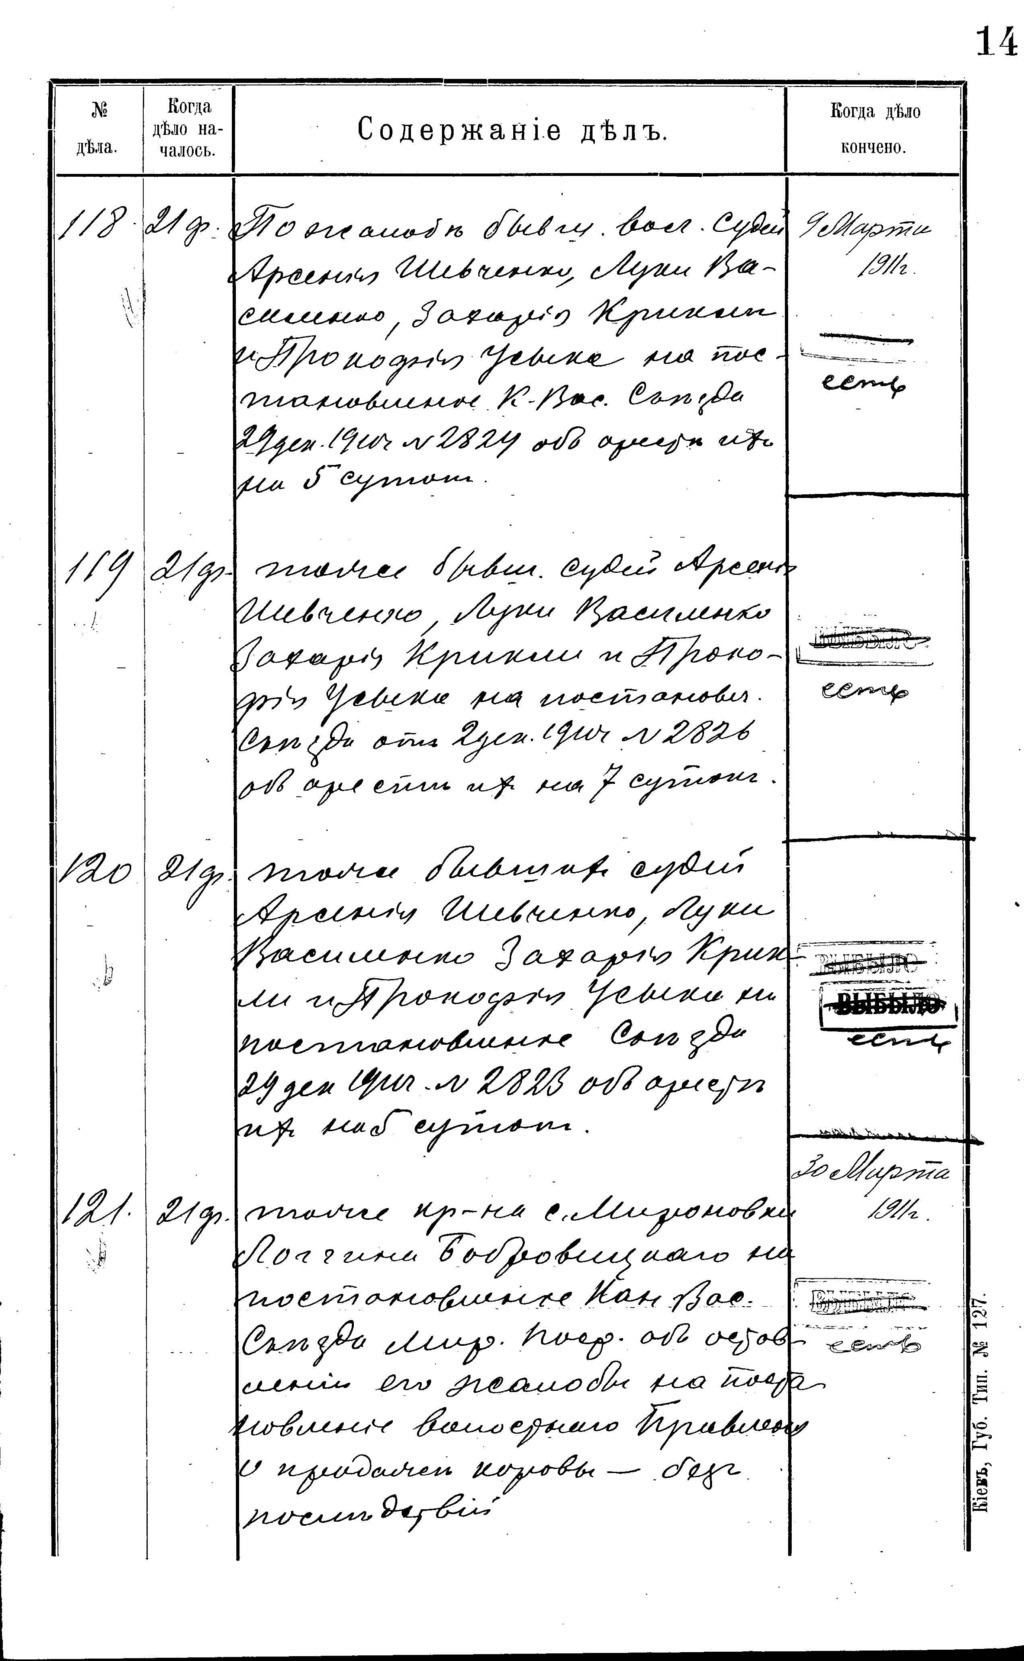 14
№ дѣла.
Когда дѣло на-чалось.
Содержаніе дѣлъ.
Когда дѣло кончено.
118. 21 ф. По жалобѣ бывш. вол. судей
Арсенія Шевченко, Луки Ва-
силенко, Захарія Крикли
и Прокофія Усыка на пос-
тановленіе К-Вас. Съѣзда
29 дек. 1910г №2824 объ арестѣ ихъ
на 5 сутокъ.
9 Марта
1911г.
есть
119 21 ф. тоже бывш. судей Арсенія
Шевченко, Луки Василенко
Захарія Крикли и Проко-
фія Усыка на постановл.
Съѣзда отъ 2 дек. 1910г №2826
объ арестѣ ихъ на 7 сутокъ.
ВЫБЫЛО
есть
120 21 ф. тоже бывшихъ судей
Арсенія Шевченко, Луки
Василенко Захарія Крик-
ли и Прокофія Усыка на
постановленіе Съѣзда
29 дек 1910г. №2823 объ арестѣ
ихъ на 5 сутокъ.
ВЫБЫЛО
ВЫБЫЛО
есть
121. 21 ф. тоже кр-на с. Мироновки
Логгина Бобровицкаго на
постановленіе Кан. Вас.
Съѣзда Мир. Поср. объ остав-
леніи его жалобы на поста
новленіе волостнаго Правленія
о продажѣ коровы — безъ
послѣдствій
30 Марта
1911г.
есть
Кіевъ, Губ. Тип. № 127.